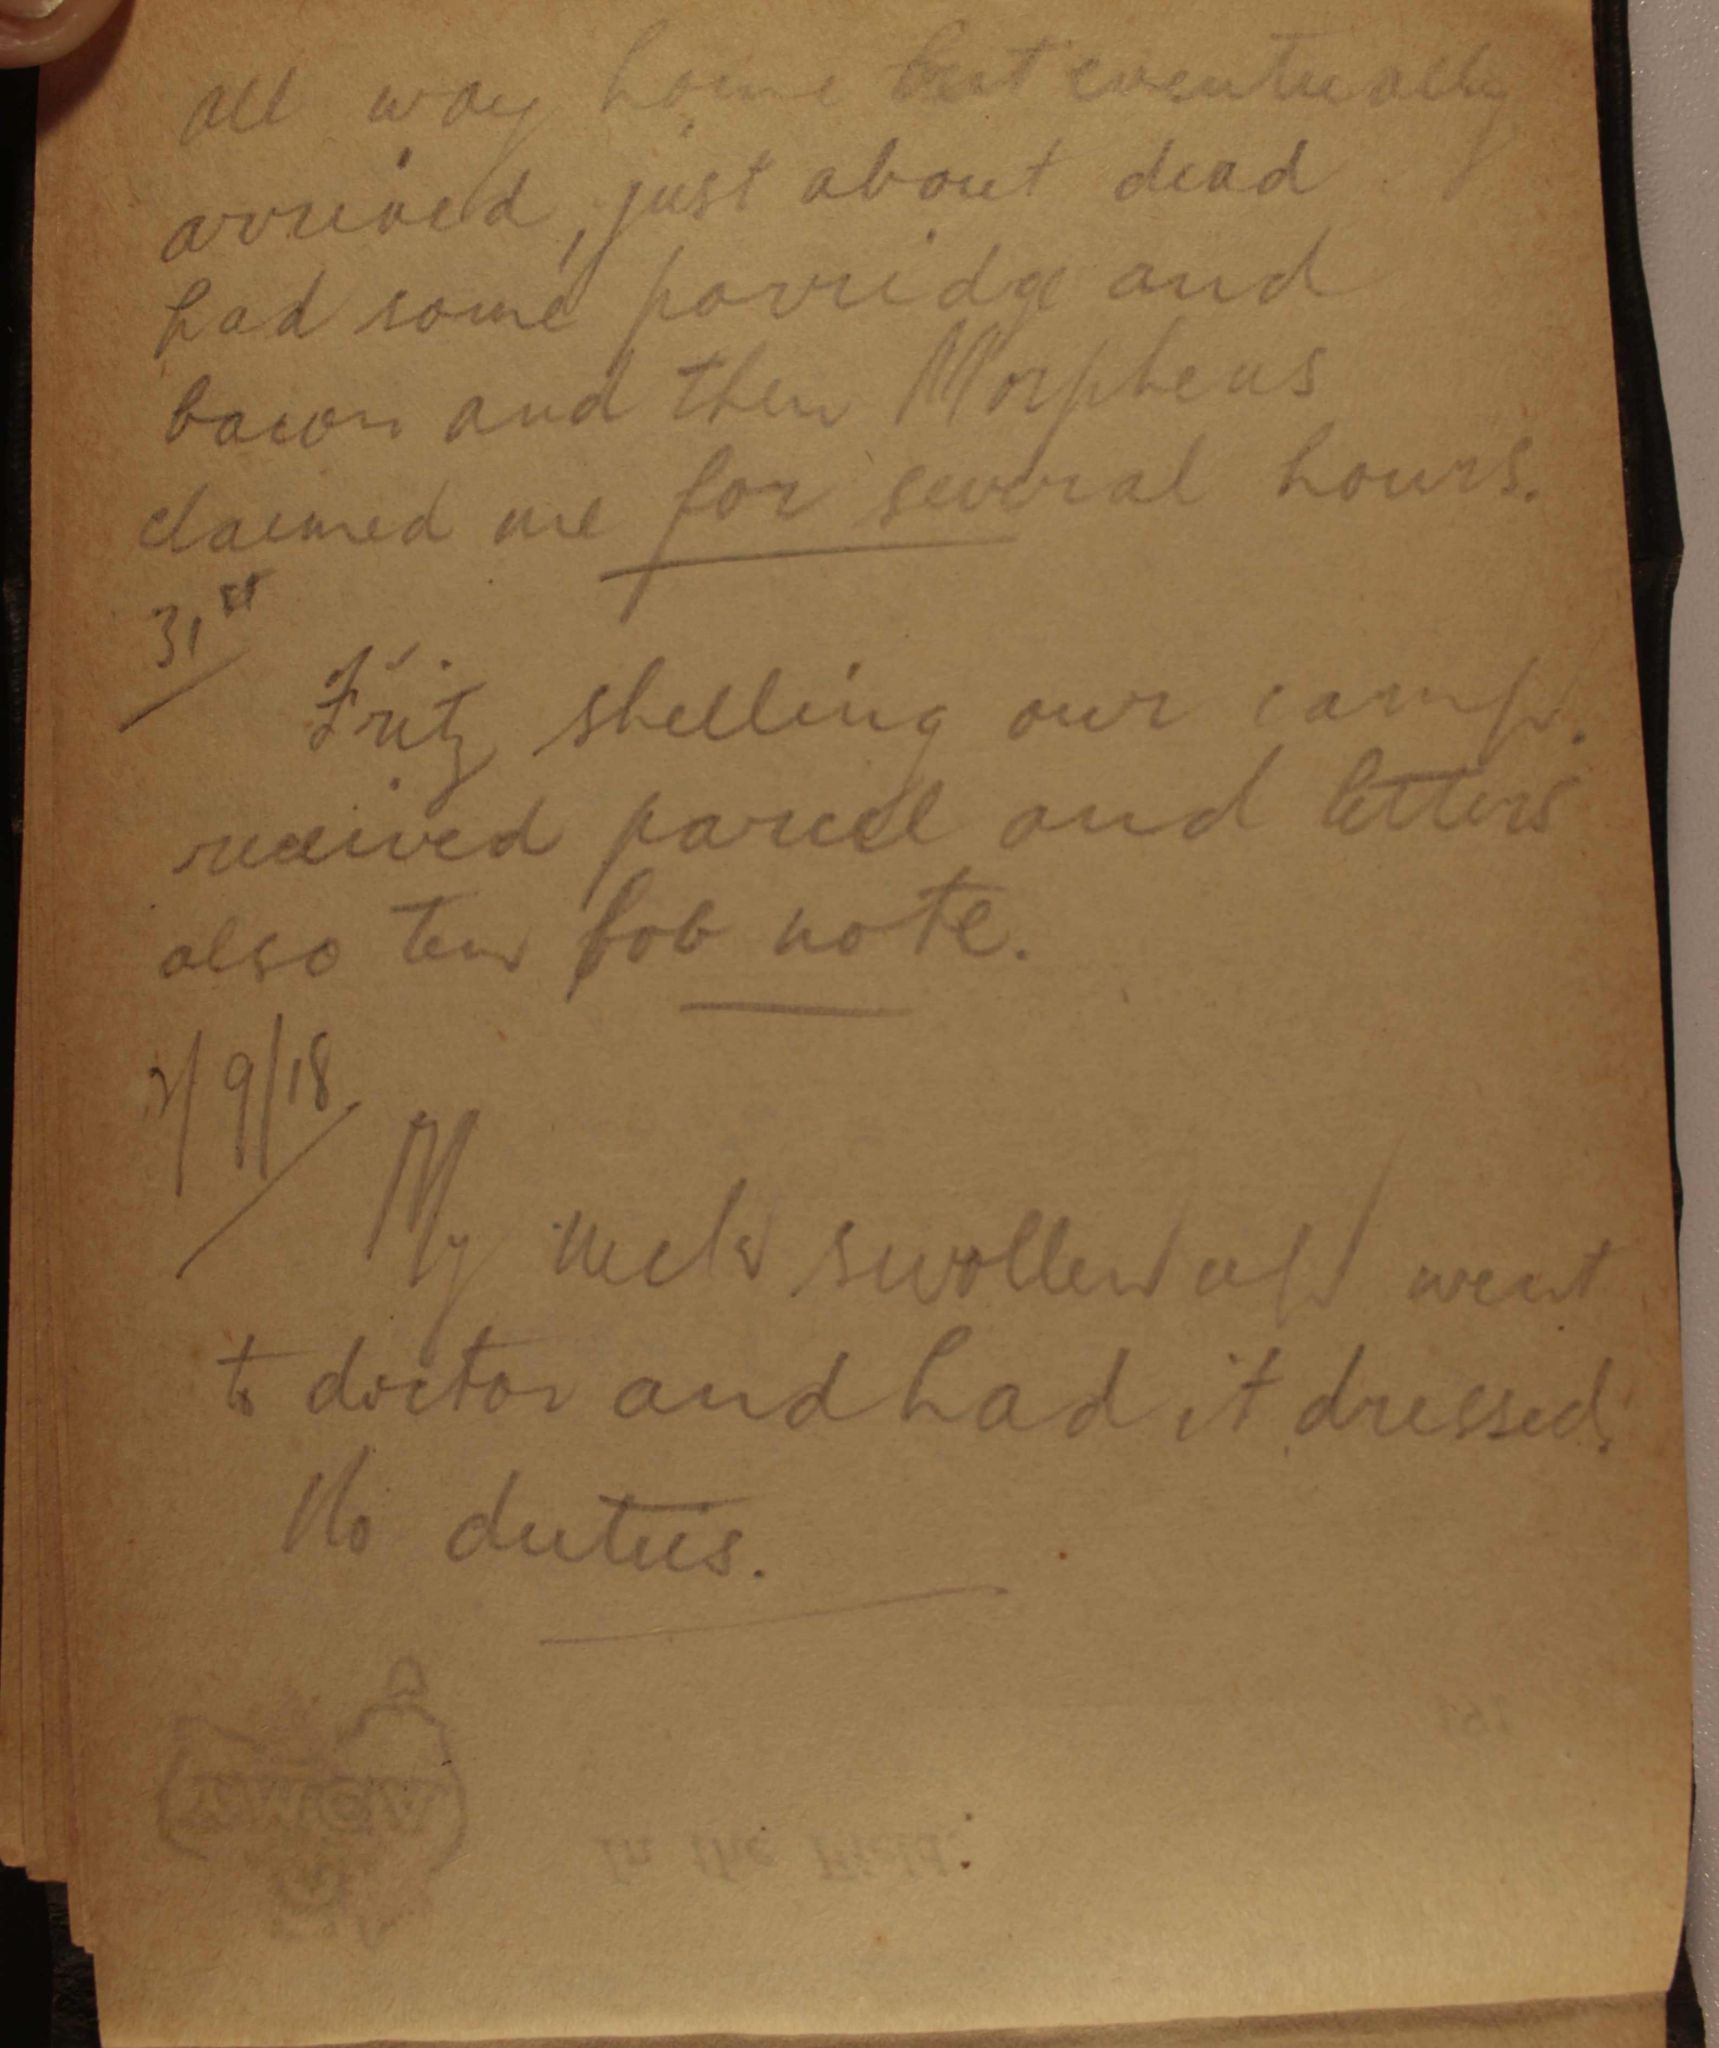 all way home but eventually
arrived, just about dead
had some porridge and
bacon and then Morpheus
claimed me for several hours.
31st
Fritz shelling our camp.
received parcel and letters
also ten bob note.
2/9/18
My neck swollen up went
to doctor and had it dressed.
No duties.
191
YMCA
In the Field.